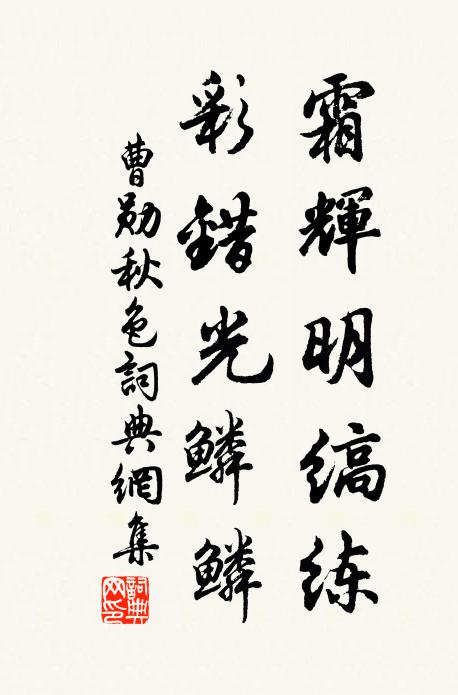 霜輝明縞练
彩錯光鱗鱗
曹勋秋色詞典網集
詞典网印